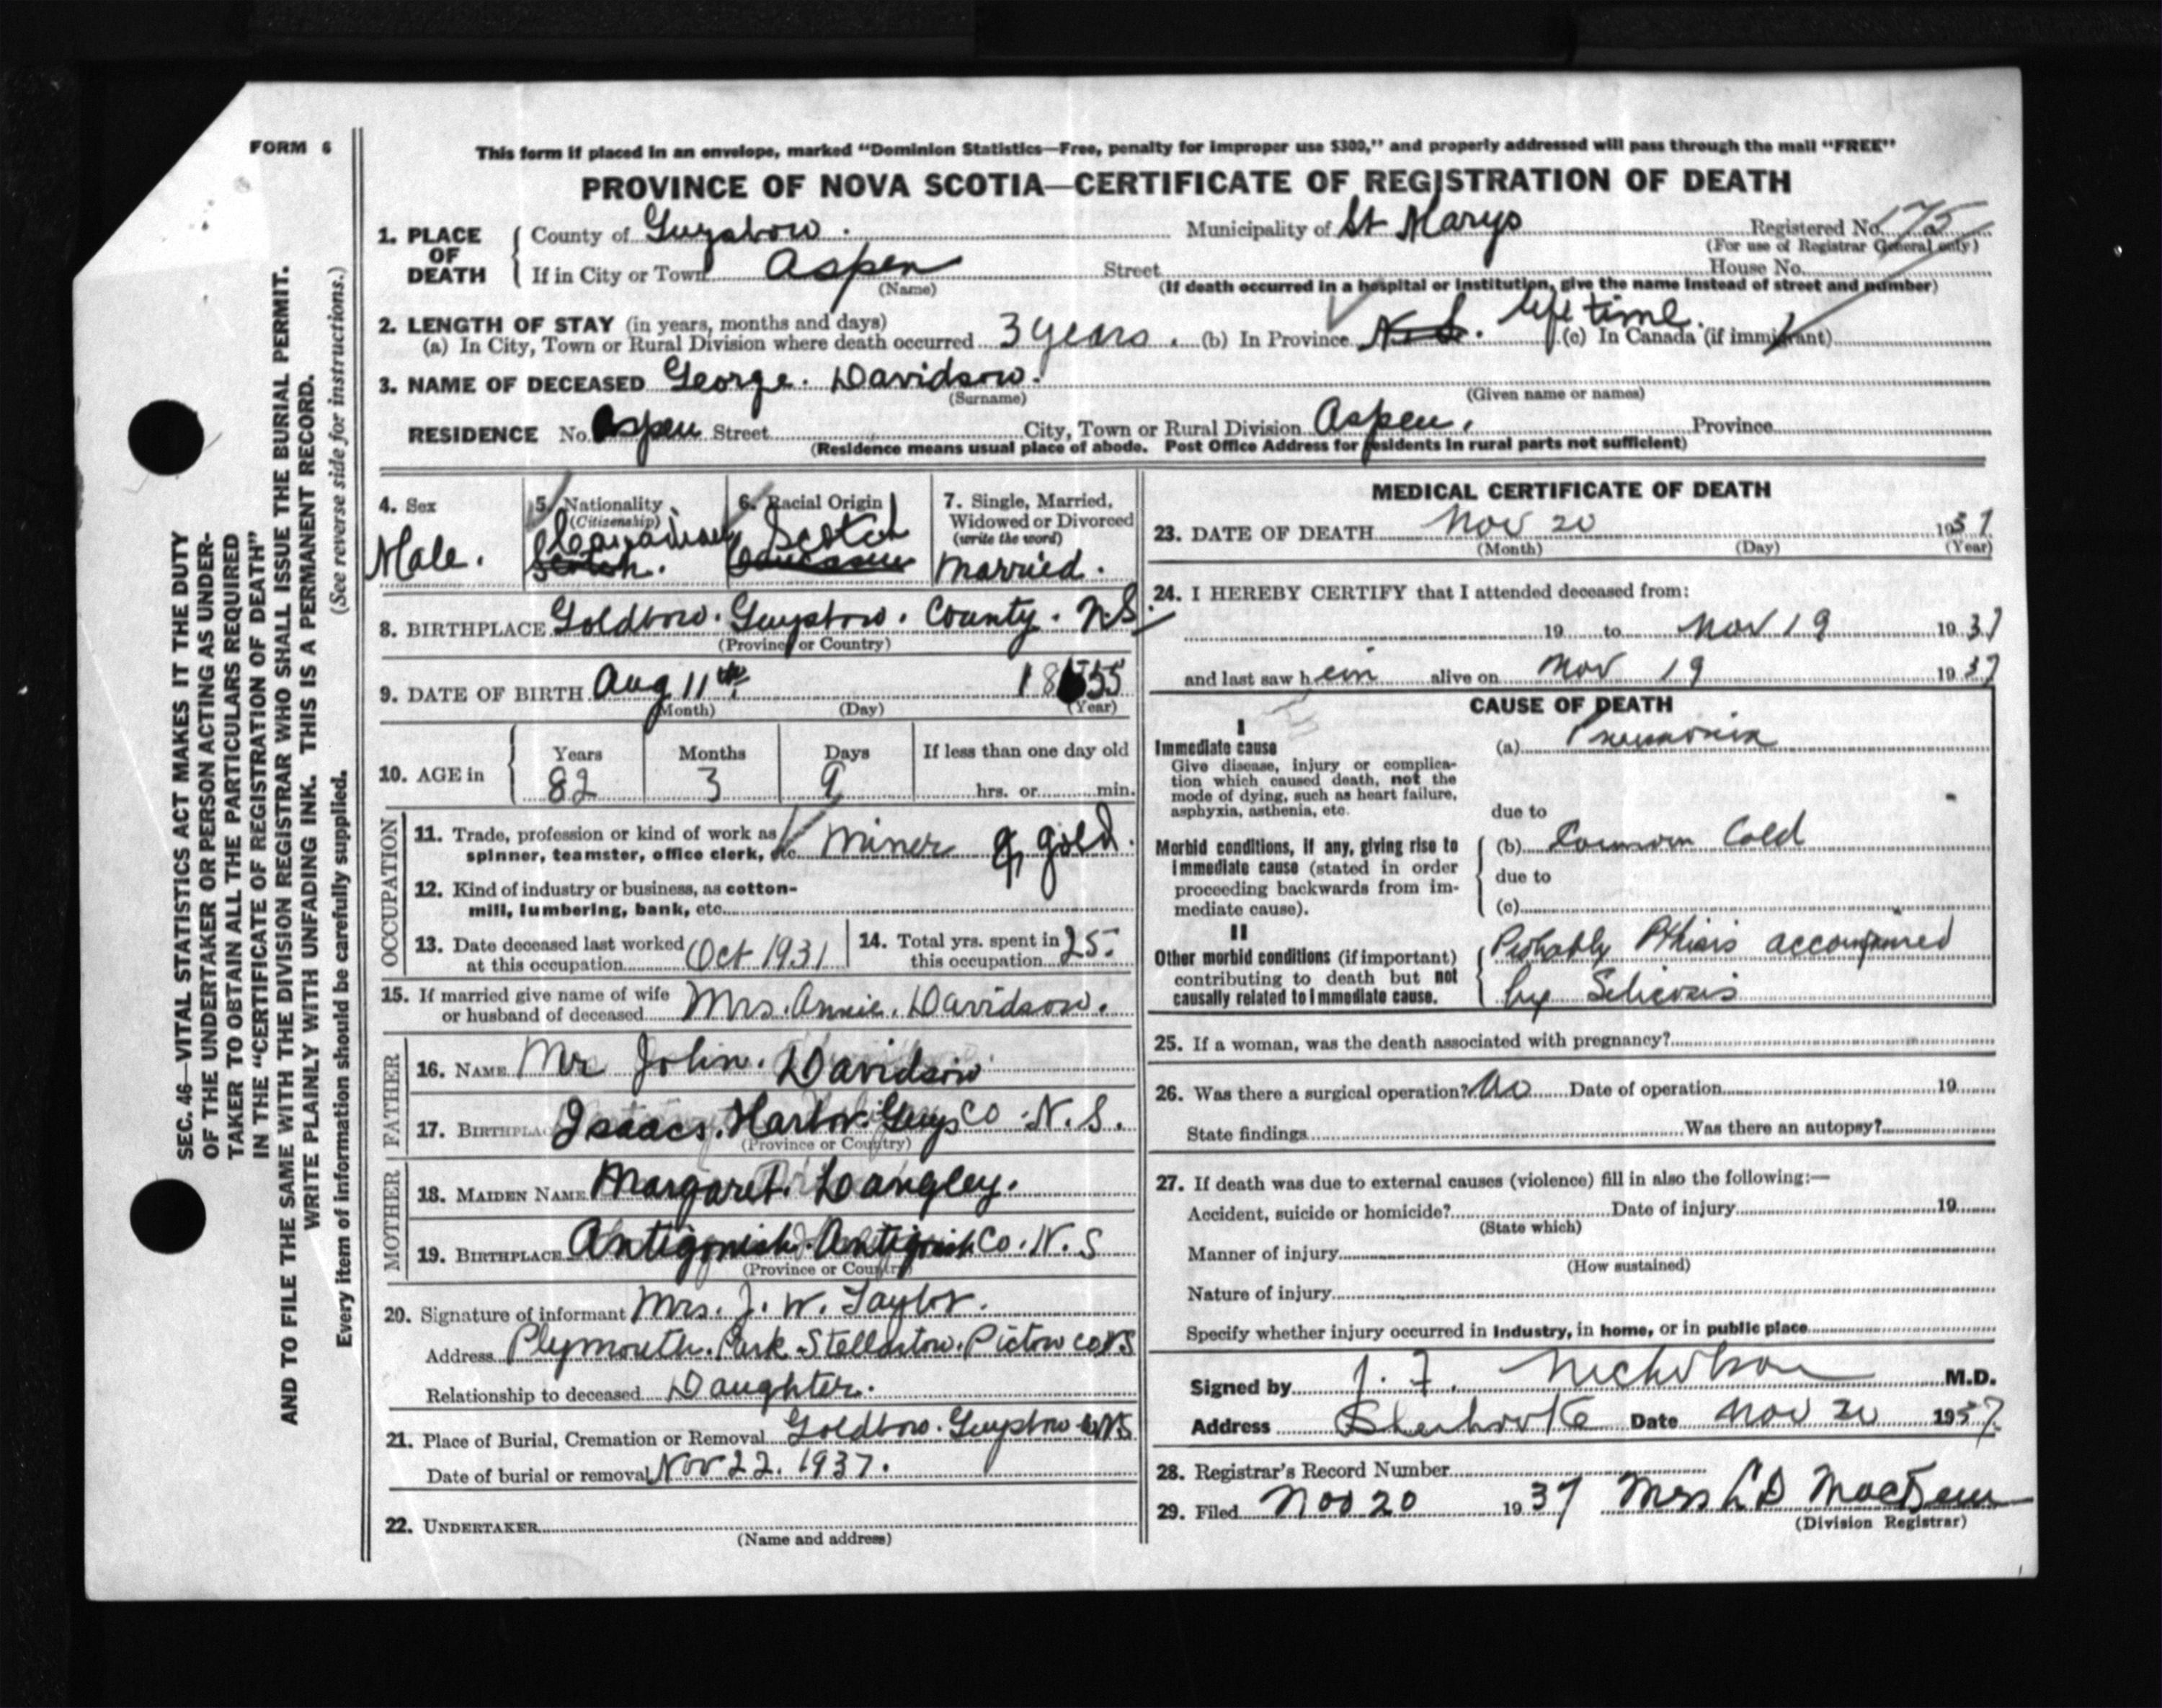 FORM 6
This form if placed in an envelope, marked “Dominion Statistics—Free, penalty for improper use $300,” and properly addressed will pass through the mail “FREE”
PROVINCE OF NOVA SCOTIA—CERTIFICATE OF REGISTRATION OF DEATH
1. PLACE OF DEATH
County of Guysboro. Municipality of St Marys Registered No. 175
(For use of Registrar General only)
If in City or Town Aspen Street House No.
(Name) (If death occurred in a hospital or institution, give the name instead of street and number)
2. LENGTH OF STAY (in years, months and days)
(a) In City, Town or Rural Division where death occurred 3 years. (b) In Province N.S. life time. (c) In Canada (if immigrant)
3. NAME OF DECEASED George. Davidson.
(Surname) (Given name or names)
RESIDENCE No. Aspen Street City, Town or Rural Division Aspen. Province
(Residence means usual place of abode. Post Office Address for residents in rural parts not sufficient)
4. Sex
Male.
5. Nationality
(Citizenship)
Canadian
Scotch.
6. Racial Origin
Scotch
7. Single, Married,
Widowed or Divorced
(write the word)
Married.
8. BIRTHPLACE Goldboro. Guysboro. County. N.S.
(Province or Country)
9. DATE OF BIRTH Aug 11th. 1855
(Month) (Day) (Year)
10. AGE in
Years Months Days If less than one day old
82 3 9 hrs. or min.
OCCUPATION
11. Trade, profession or kind of work as
spinner, teamster, office clerk, etc. Miner of gold.
12. Kind of industry or business, as cotton-
mill, lumbering, bank, etc.
13. Date deceased last worked
at this occupation Oct 1931
14. Total yrs. spent in
this occupation 25.
15. If married give name of wife
or husband of deceased Mrs. Annie. Davidson.
FATHER
16. NAME Mr John. Davidson
17. BIRTHPLACE Isaacs. Harbor. Guys Co. N.S.
(Province or Country)
MOTHER
18. MAIDEN NAME Margaret. Langley.
19. BIRTHPLACE Antigonish. Antigonish Co. N.S
(Province or Country)
20. Signature of informant Mrs. J. W. Taylor.
Address Plymouth. Park. Stellarton. Pictou Co NS
Relationship to deceased Daughter.
21. Place of Burial, Cremation or Removal Goldboro. Guysboro Co NS
Date of burial or removal Nov 22. 1937.
22. UNDERTAKER
(Name and address)
MEDICAL CERTIFICATE OF DEATH
23. DATE OF DEATH Nov 20 1937
(Month) (Day) (Year)
24. I HEREBY CERTIFY that I attended deceased from:
19 to Nov 19 1937
and last saw h im alive on Nov 19 1937
CAUSE OF DEATH
I
Immediate cause
Give disease, injury or complica-
tion which caused death, not the
mode of dying, such as heart failure,
asphyxia, asthenia, etc.
(a) Pneumonia
due to
Morbid conditions, if any, giving rise to
immediate cause (stated in order
proceeding backwards from im-
mediate cause).
(b) Common Cold
due to
(c)
II
Other morbid conditions (if important)
contributing to death but not
causally related to immediate cause.
Probably Pthisis accompanied
by Silicosis
25. If a woman, was the death associated with pregnancy?
26. Was there a surgical operation? No Date of operation 19
State findings Was there an autopsy?
27. If death was due to external causes (violence) fill in also the following:—
Accident, suicide or homicide? Date of injury 19
(State which)
Manner of injury
(How sustained)
Nature of injury
Specify whether injury occurred in industry, in home, or in public place
Signed by J. F. Nicholson M.D.
Address Sherbrooke Date Nov 20 1937
28. Registrar's Record Number
29. Filed Nov 20 1937 Mrs
(Division Registrar)
SEC. 46—VITAL STATISTICS ACT MAKES IT THE DUTY
OF THE UNDERTAKER OR PERSON ACTING AS UNDER-
TAKER TO OBTAIN ALL THE PARTICULARS REQUIRED
IN THE “CERTIFICATE OF REGISTRATION OF DEATH”
AND TO FILE THE SAME WITH THE DIVISION REGISTRAR WHO SHALL ISSUE THE BURIAL PERMIT.
WRITE PLAINLY WITH UNFADING INK. THIS IS A PERMANENT RECORD.
(See reverse side for instructions.)
Every item of information should be carefully supplied.